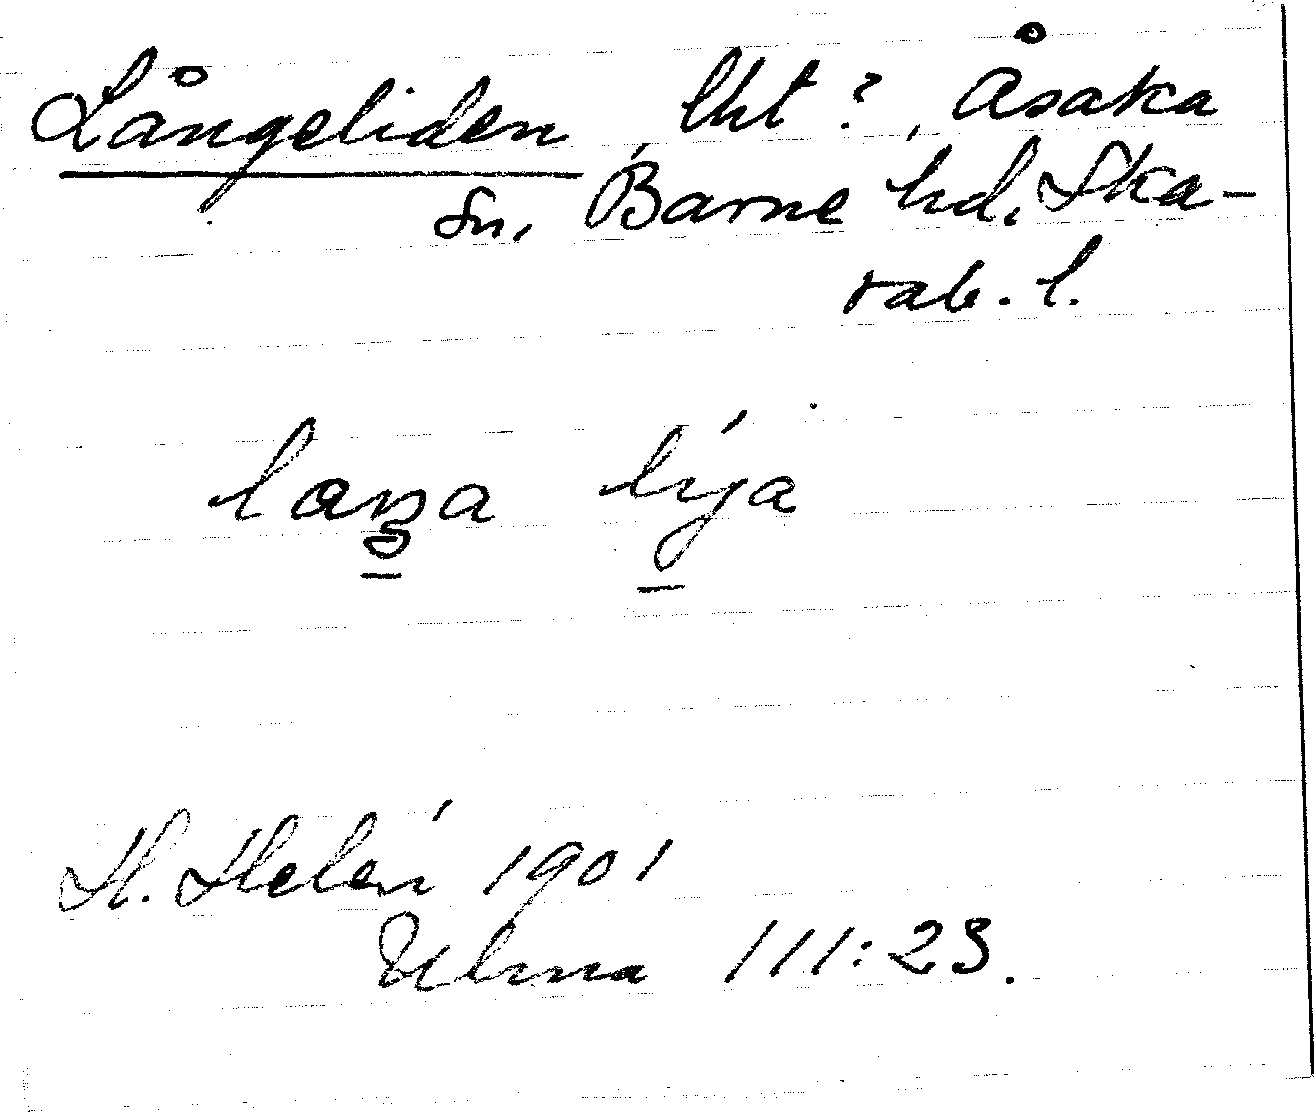 Långeliden, lht?, Åsaka
sn, Barne hd. Ska-
rab. l.
H. Helén 1901
Ulma 111:23.